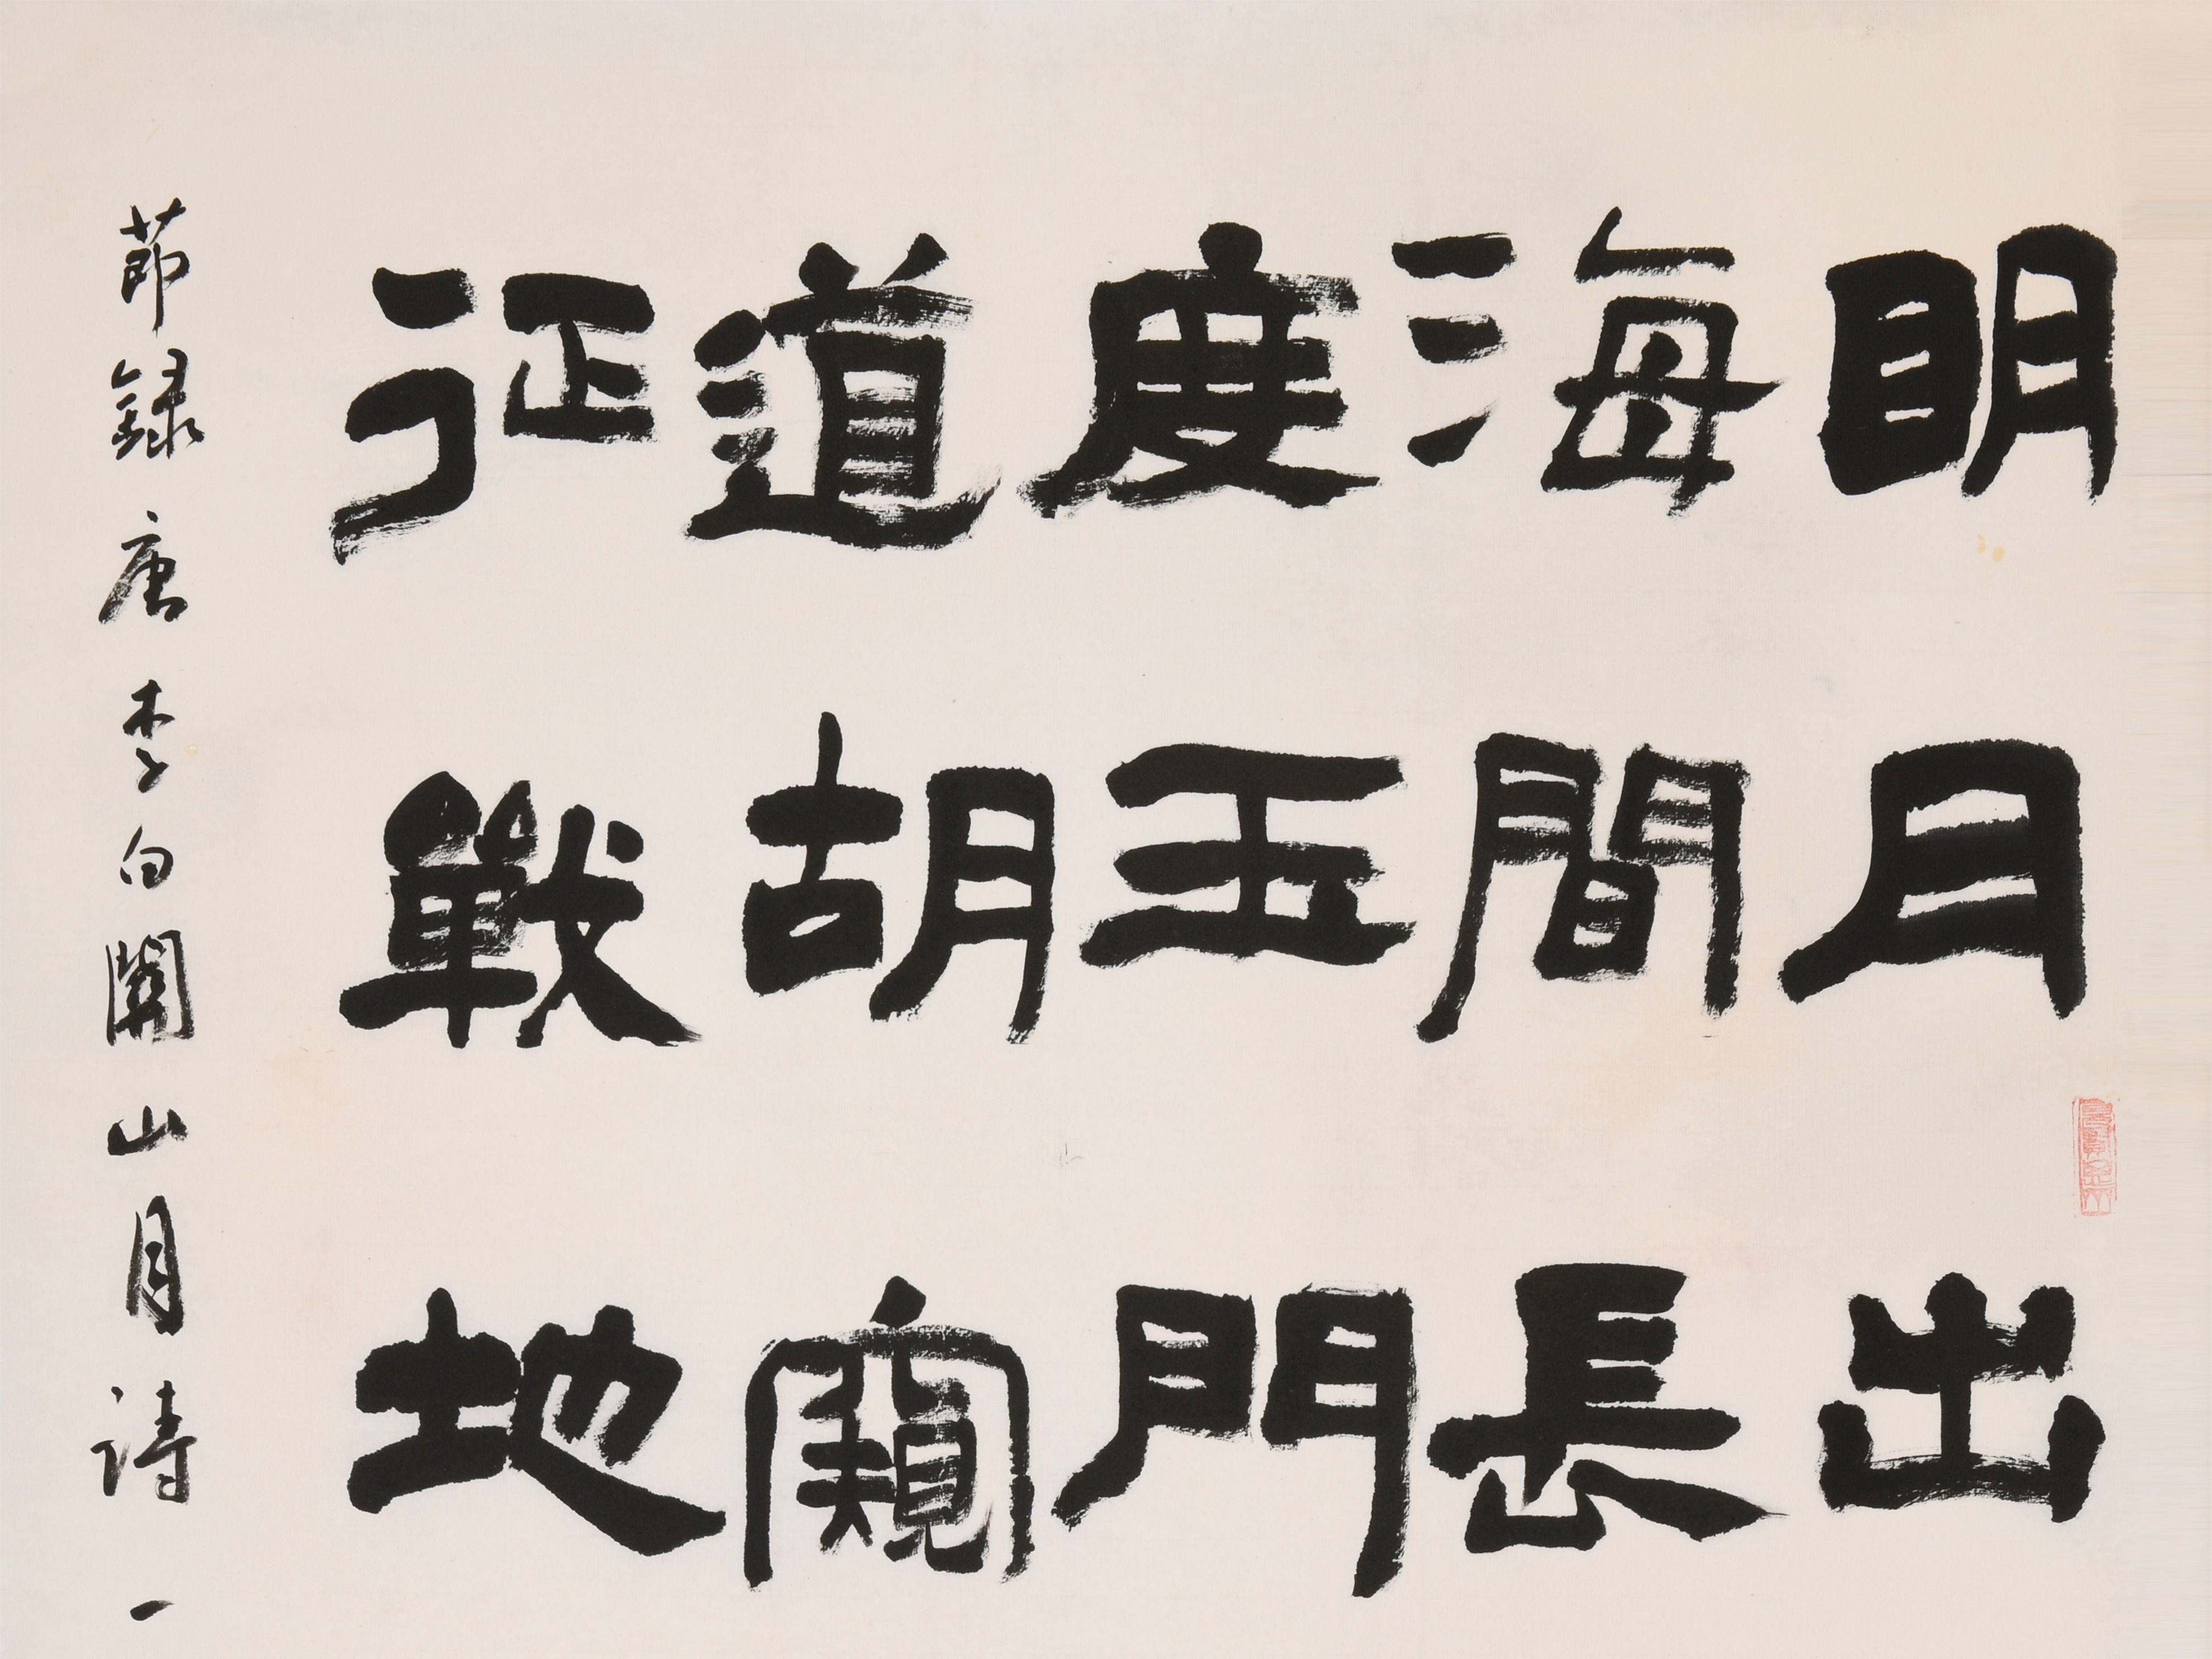 明月出
海間長
度玉門
道胡窺
征戰地
節錄唐李白關山月詩一